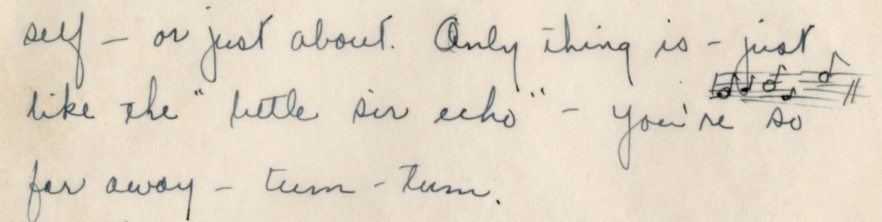 self – or just about. Only thing is – just
like the "little sir echo" – you're so
far away – tum – tum.